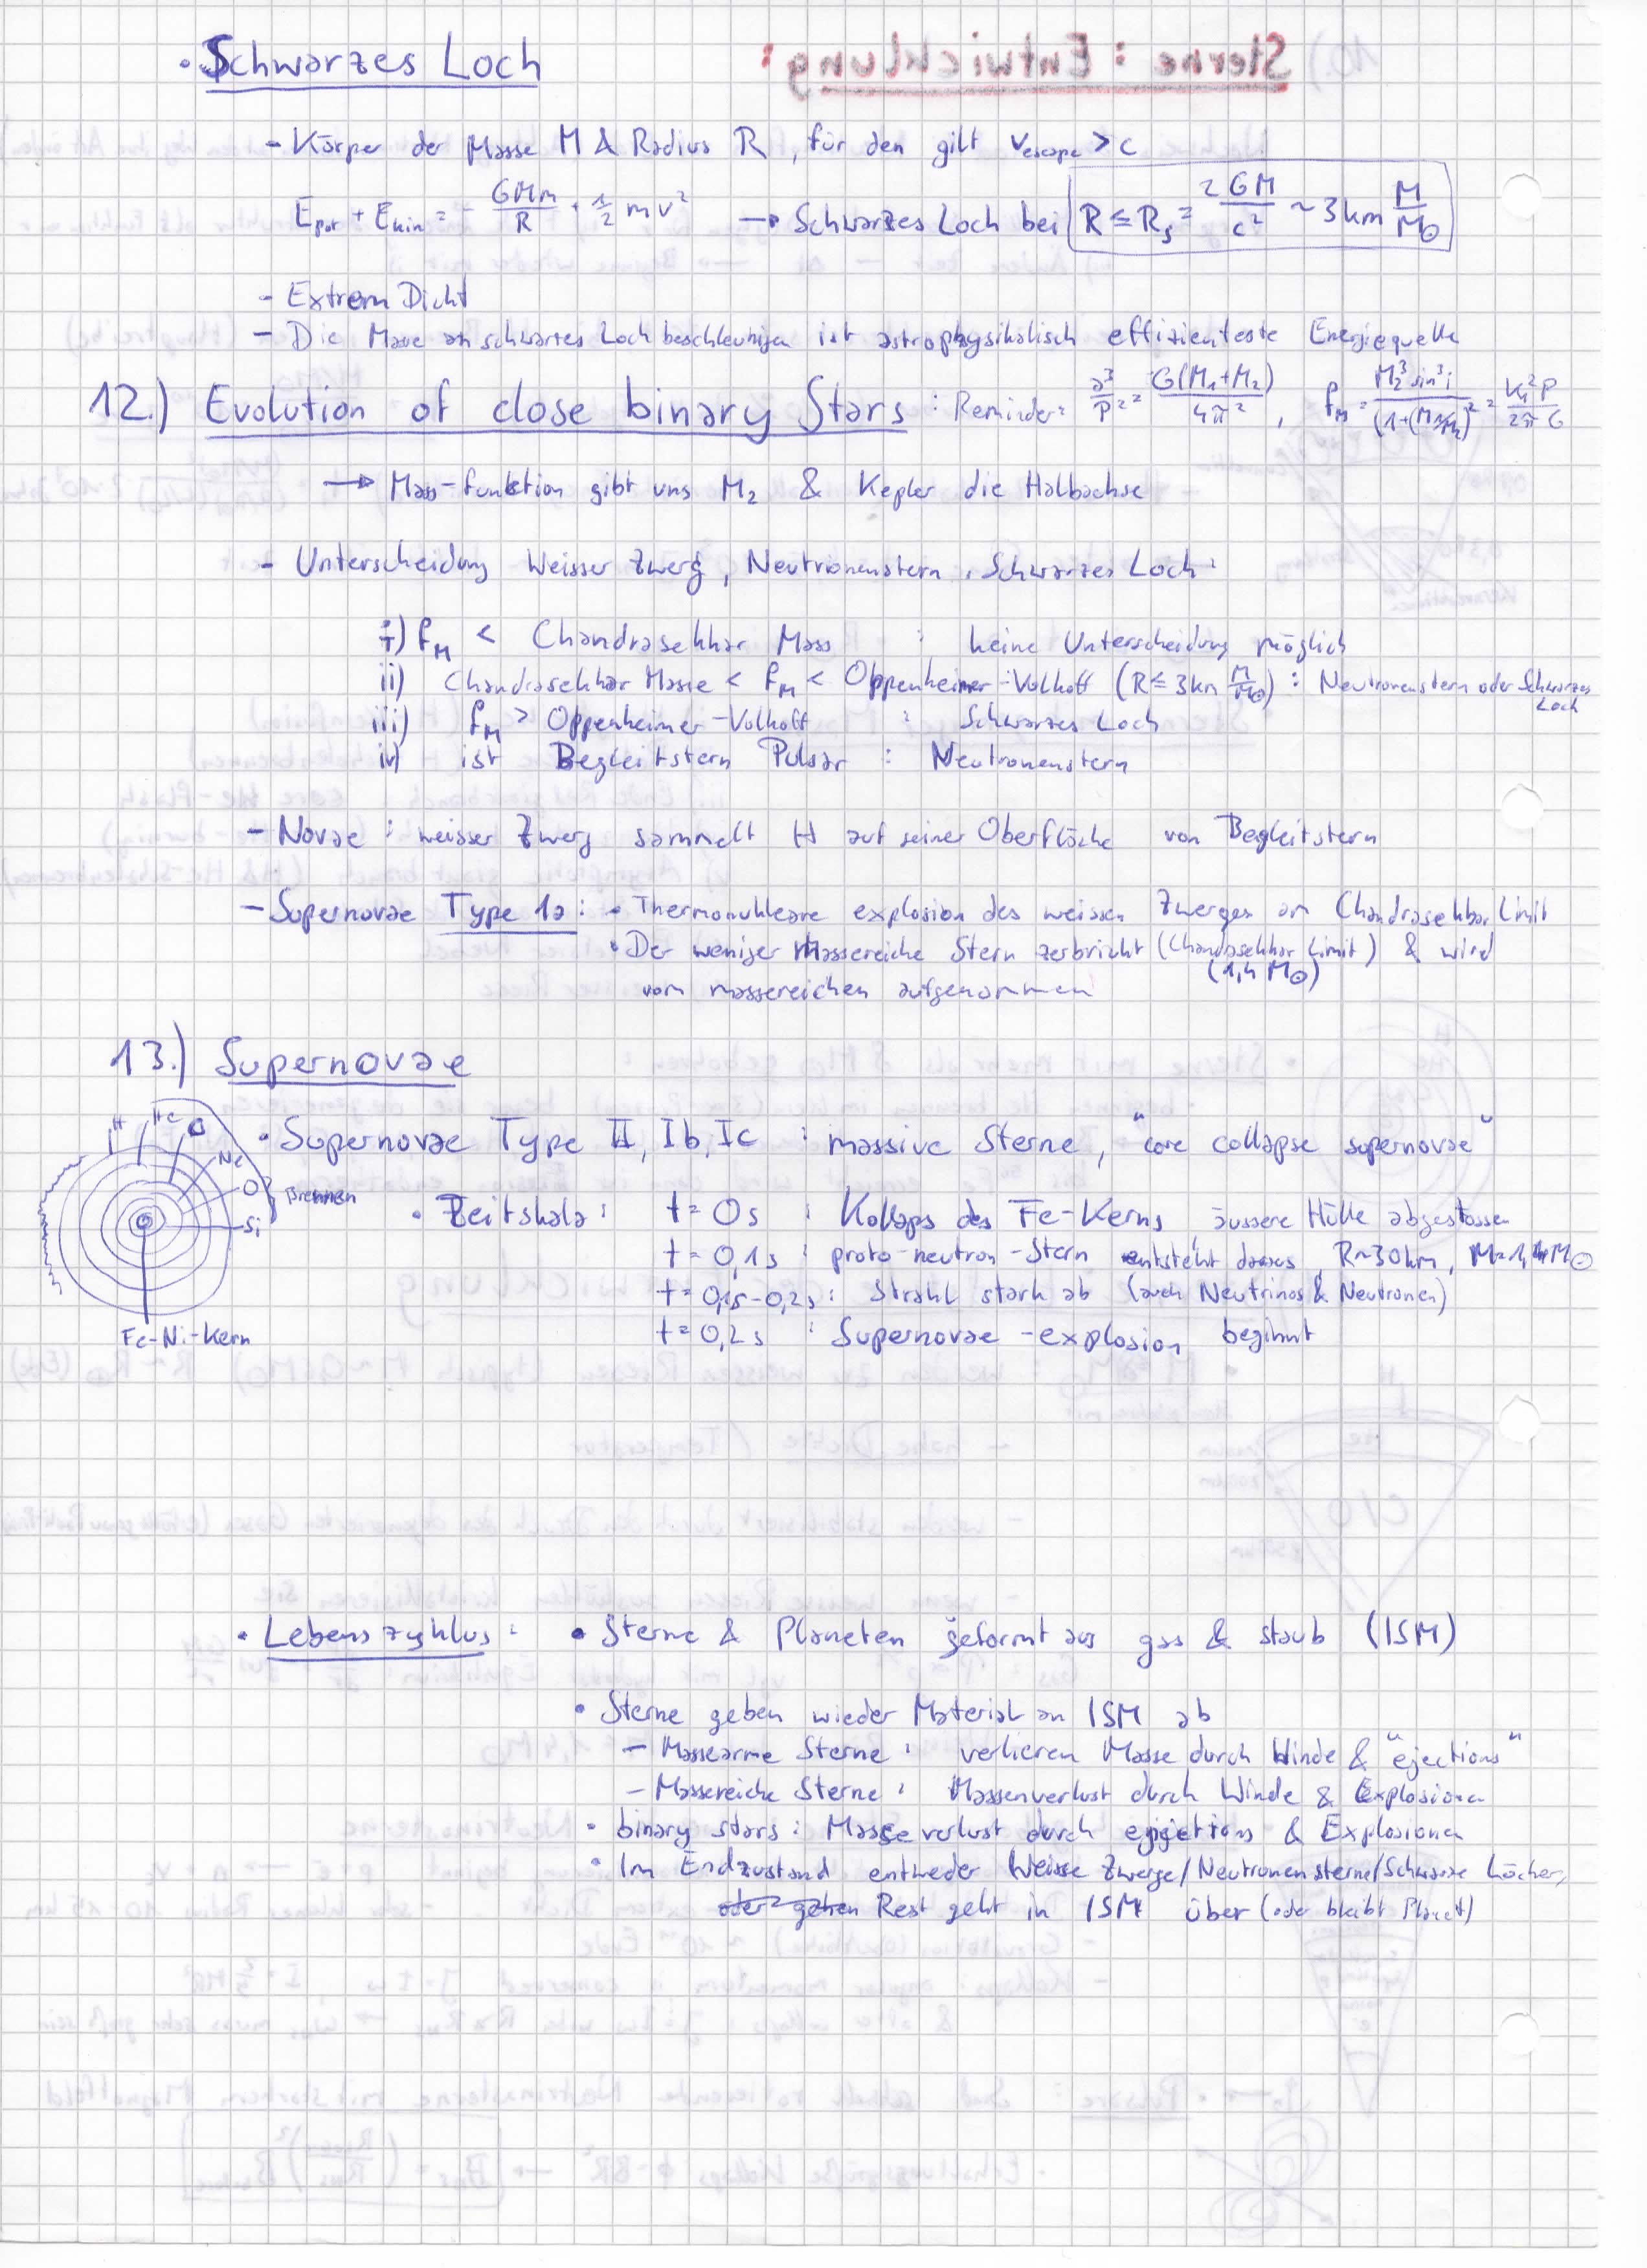 • Schwarzes Loch
- Körper der Masse M & Radius R, für den gilt v_escape > c
E_pot + E_kin = - GMm/R + 1/2 mv² → Schwarzes Loch bei R ≤ R_s = 2GM/c² ~ 3km M/M☉
- Extrem Dicht
- Die Masse an schwarzes Loch beschleunigen ist astrophysikalisch effizienteste Energiequelle
12.) Evolution of close binary Stars : Reminder: a³/P² = G(M₁+M₂)/4π² , f_M = M₂³ sin³i/(1+(M₁/M₂))² = K₁³P/2πG
→ Mass-funktion gibt uns M₂ & Kepler die Halbachse
- Unterscheidung Weisser Zwerg, Neutrionenstern, Schwarzes Loch:
i) f_M < Chandrasekhar Mass : keine Unterscheidung möglich
ii) Chandrasekhar Masse < f_M < Oppenheimer-Volkoff (R ≤ 3km M/M☉) : Neutronenstern oder Schwarzes Loch
iii) f_M > Oppenheimer-Volkoff : Schwarzes Loch
iv) ist Begleitstern Pulsar : Neutronenstern
- Novae : weisser Zwerg sammelt H auf seiner Oberfläche von Begleitstern
- Supernovae Type 1a : • Thermonukleare explosion des weissen Zwerges am Chandrasekhar Limit
• Der weniger Massereiche Stern zerbricht (Chandrasekhar Limit) & wird
(1,4 M☉)
vom massereichen aufgenommen
13.) Supernovae
H He O Ne O Si Brennen
Fe-Ni-Kern
• Supernovae Type II, Ib, Ic : massive Sterne, "core collapse supernovae"
• Zeitskala : t = 0s : Kollaps des Fe-Kerns, äussere Hülle abgestossen
t = 0,1s : proto-neutron-Stern entsteht daraus, R~30km, M~1,4M☉
t = 0,1s-0,2s : Strahlt stark ab (auch Neutrinos & Neutronen)
t = 0,2s : Supernovae-explosion beginnt
• Lebenszyklus : • Sterne & Planeten geformt aus gas & staub (ISM)
• Sterne geben wieder Material an ISM ab
- Massearme Sterne : verlieren Masse durch Winde & "ejections"
- Massereiche Sterne : Massenverlust durch Winde & Explosionen
• binary stars : Masseverlust durch ejections & Explosionen
• Im Endzustand entweder Weisse Zwerge/Neutronensterne/Schwarze Löcher,
oder gehen Rest geht in ISM über (oder bleibt Planet)